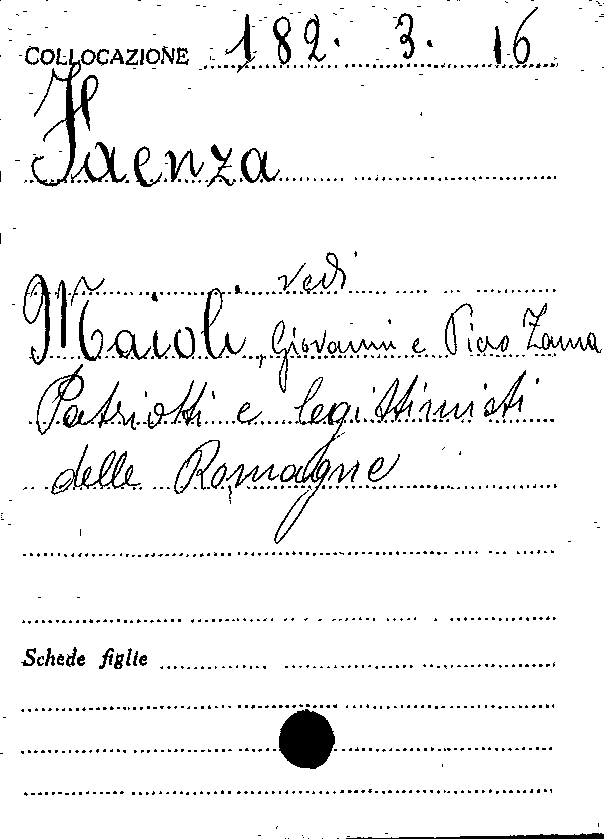 COLLOCAZIONE 182. 3. 16
Faenza
vedi
Maioli, Giovanni e Piero Zama
Patriotti e legittimisti
delle Romagne
Schede figlie